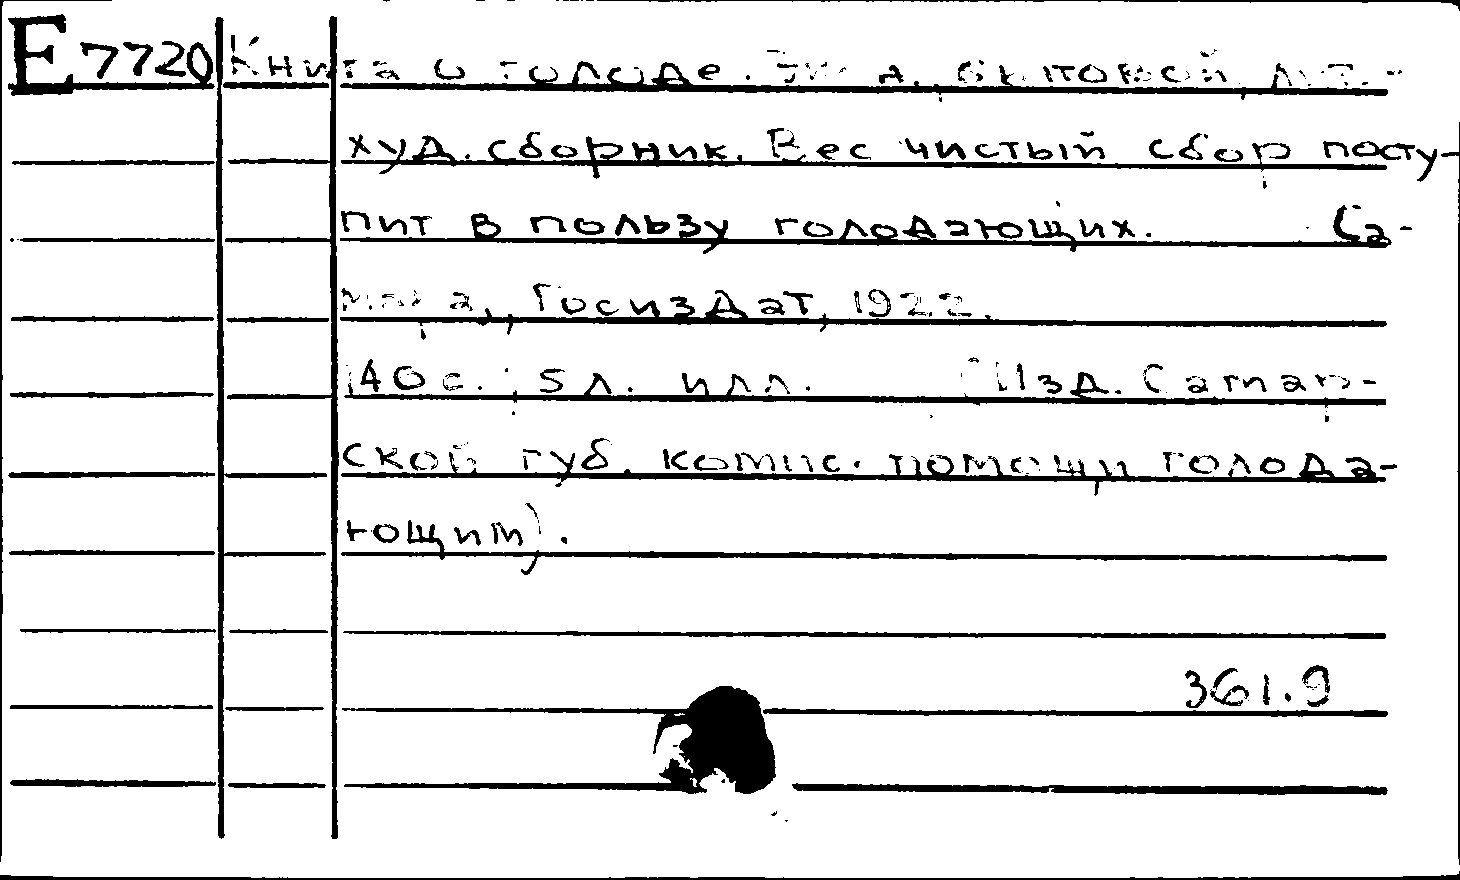 E7720 Книга о голоде. Эк д., бытовой, лит.-
худ. сборник. Вес чистый сбор посту-
пит в пользу голодающих. (Са-
мара,, Госиздат, 1922.
140 с.; 5 л. илл. (Изд. Самар-
ской губ. комис. помощи голода-
ющим).
361.9